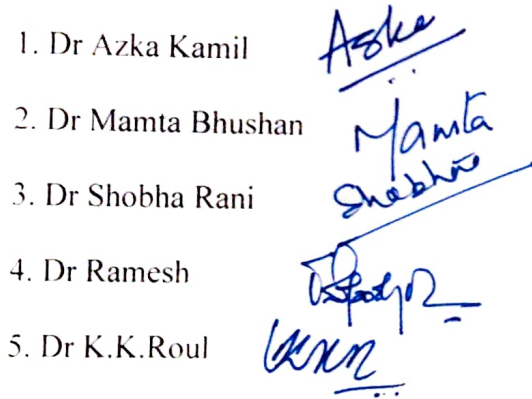 1. Dr Azka Kamil Azka
2. Dr Mamta Bhushan Mamta
3. Dr Shobha Rani Shobha
4. Dr Ramesh
5. Dr K.K.Roul